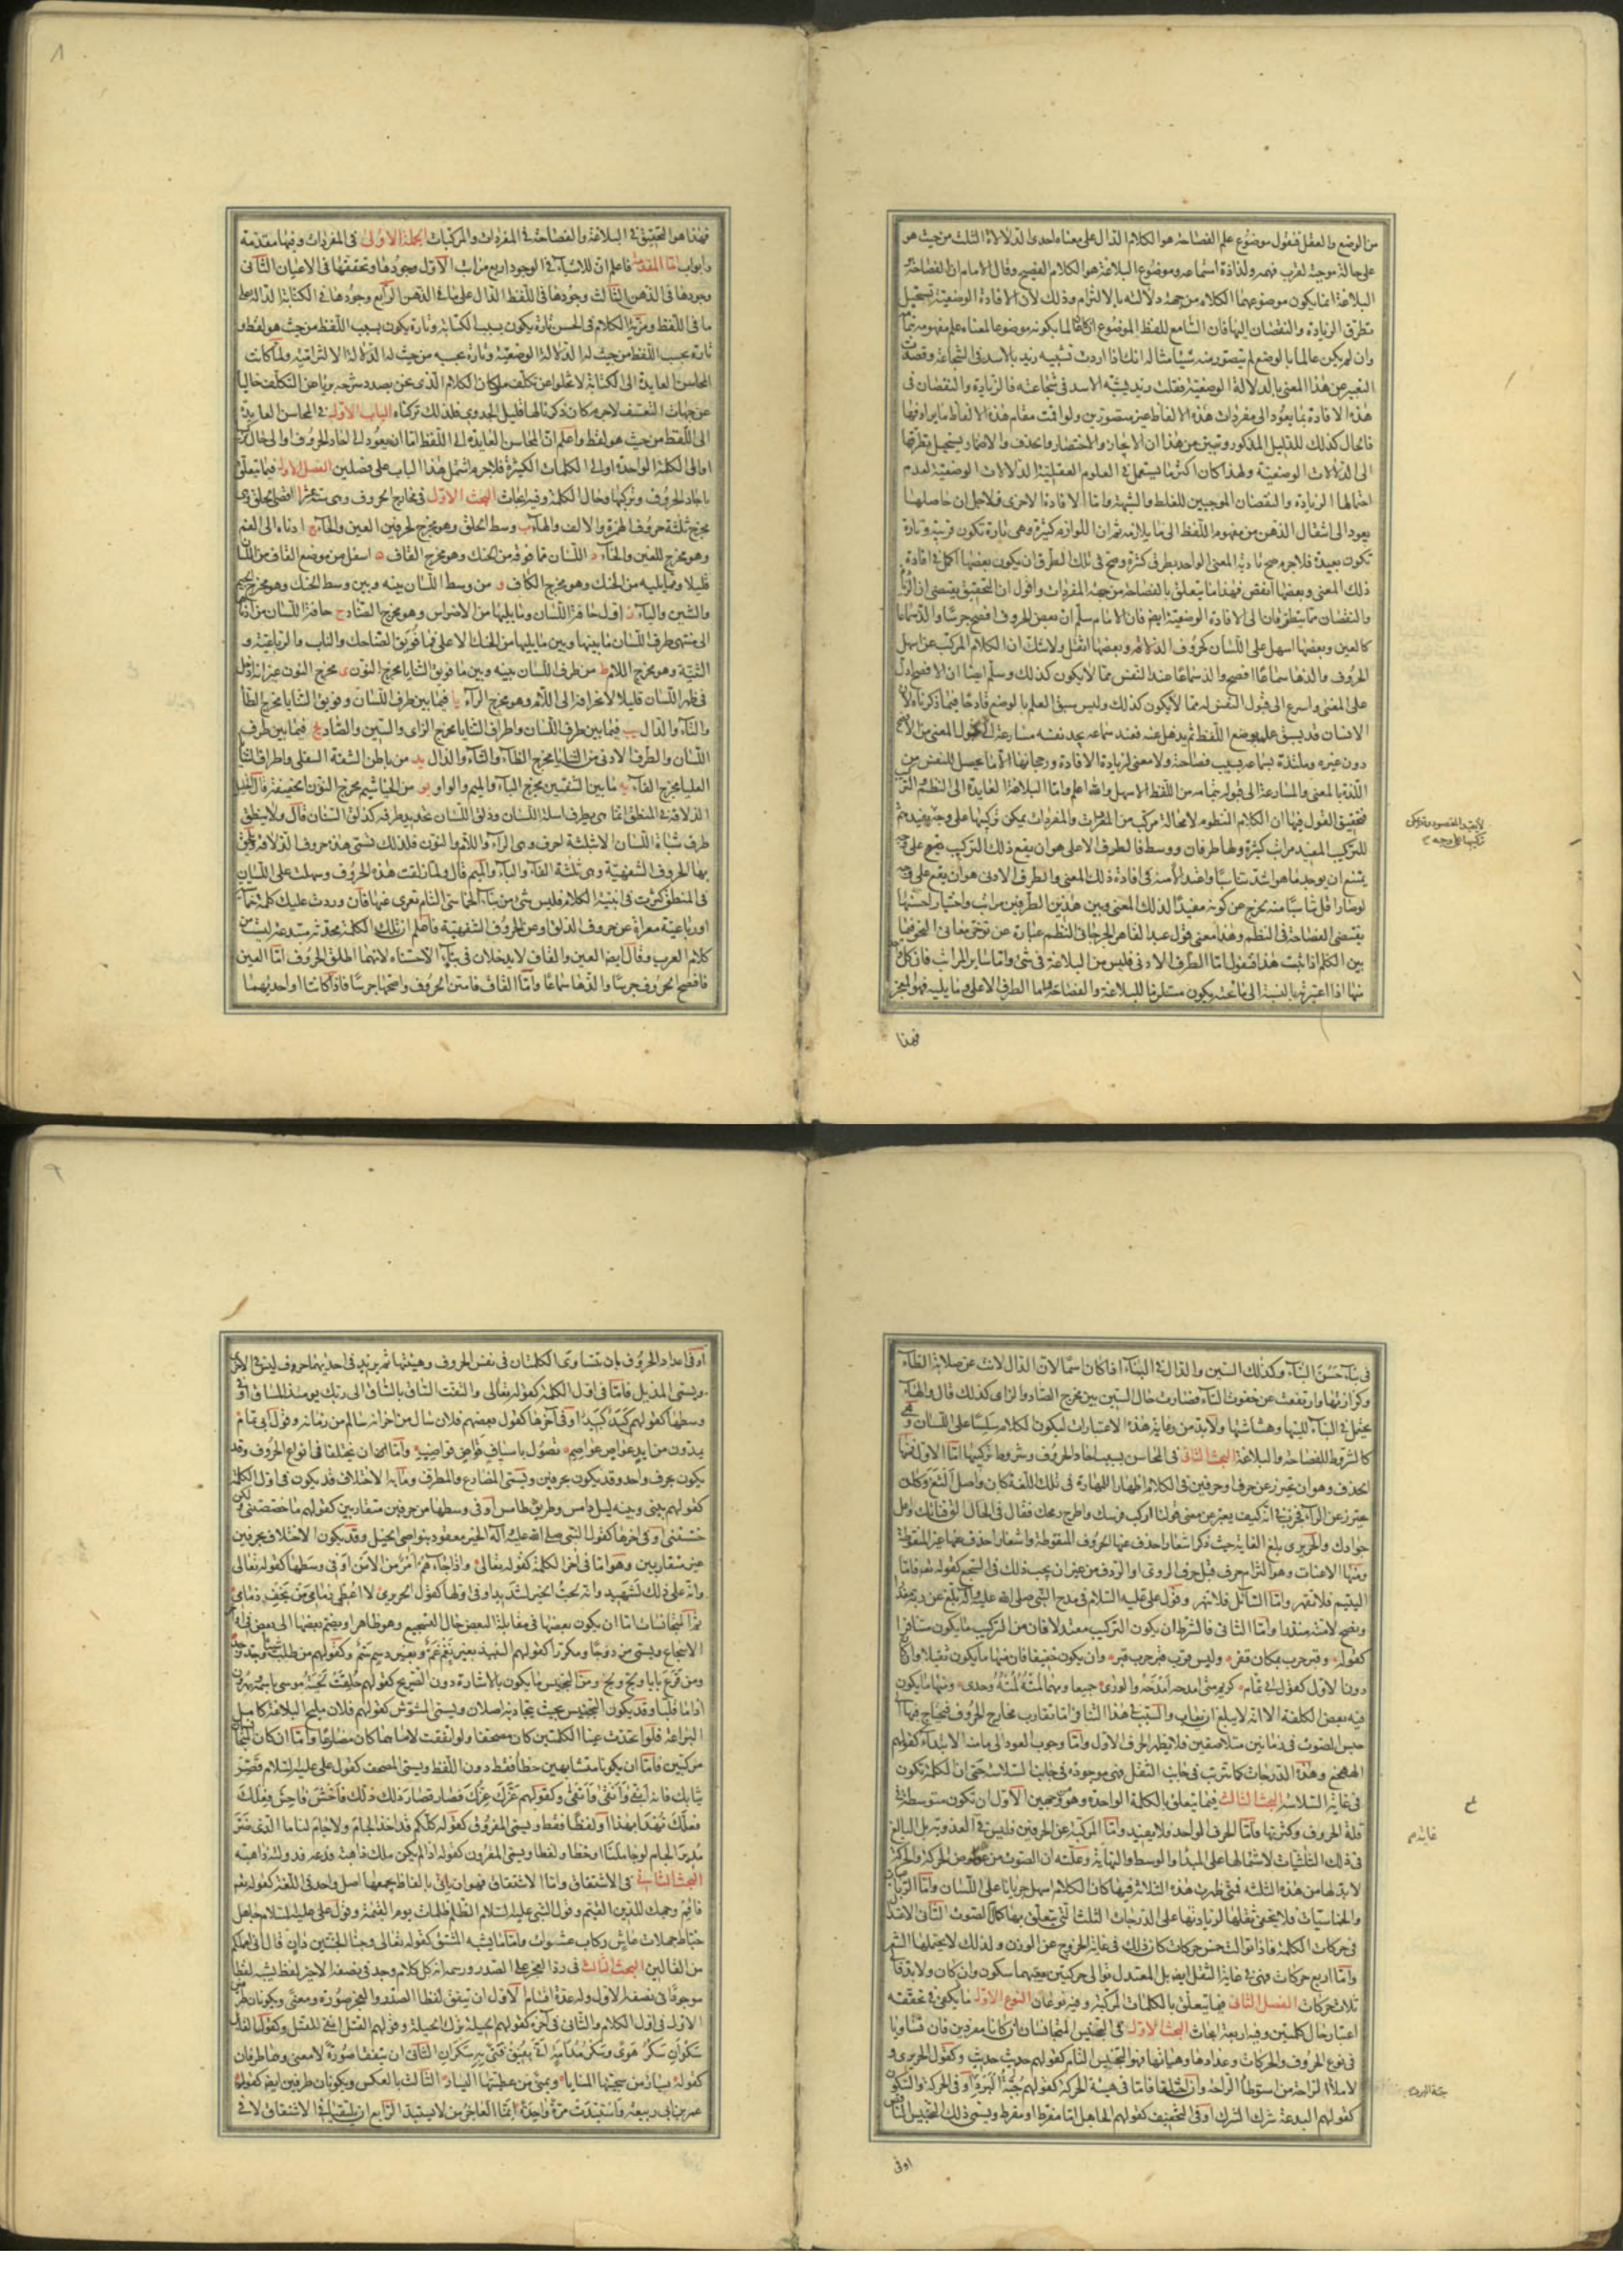 من الوضع والعقل فنقول موضوع علم الفصاحة هو الكلام الدال على معناه احدى الدلالات الثلث من حيث هو
على حالة موجبة لقرب فهمه ولذاذة استماعه وموضوع البلاغة هو الكلام الفصيح وقال الامام ان الفصاحة و
البلاغة انما يكون موضوعهما الكلام من جهة دلالته بالالتزام وذلك لان الافادة الوضعية يستحيل
تطرق الزيادة والنقصان اليها فان السامع للفظ الموضوع ان كان عالما بكونه موضوعا لمعناه علم مفهومه بتمامه
وان لم يكن عالما بالوضع لم يتصور منه شيئا مثاله انك اذا اردت تشبيه زيد بالاسد فى الشجاعة وقصدت
التعبير عن هذا المعنى بالدلالة الوضعية فقلت زيد يشبه الاسد فى شجاعته فالزيادة والنقصان فى
هذه الافادة بما يعود الى مفردات هذه الالفاظ غير متصورين ولو اقمت مقام هذه الالفاظ ما يرادفها
فالحال كذلك للدليل المذكور وتبين من هذا ان الايجاز والاختصار والحذف والاضمار يستحيل تطرقها
الى الدلالات الوضعية ولهذا كان اكثر ما يستعمل فى العلوم العقلية الدلالات الوضعية لعدم
احتمالها الزيادة والنقصان الموجبين للغلط والشبهة واما الافادة الاخرى فلاجل ان حاصلها
يعود الى انتقال الذهن من مفهوم اللفظ الى ما يلازمه ثم ان اللوازم كثيرة وهى تارة تكون قريبة وتارة
تكون بعيدة فلا جرم صح تادية المعنى الواحد بطرق كثيرة وصح فى تلك الطرق ان يكون بعضها اكمل فى افادة
ذلك المعنى وبعضها انقص فهذا ما يتعلق بالفصاحة من جهة المفردات واقول ان التحقيق يقتضى ان الزيادة
والنقصان مما يتطرقان الى الافادة الوضعية ايضا فان الامام سلم ان بعض الحروف افصح جرسا والذ سماعا
كالعين وبعضها اسهل على اللسان كحروف الذلاقة وبعضها اثقل ولا شك ان الكلام المركب عن اسهل
الحروف والذها سماعا افصح والذ سماعا عند النفس مما لا يكون كذلك وسلم ايضا ان الافصح ادل
على المعنى واسرع الى قبول النفس له مما لا يكون كذلك وليس سبق العلم بالوضع قادحا فيما ذكرناه لان
الانسان قد يسبق علمه بوضع اللفظ ثم يذهل عنه فعند سماعه يجد نفسه مسارعة الى قبول المعنى من الافصح
دون غيره وملتذة بسماعه بسبب فصاحته ولا معنى لزيادة الافادة ورجحانها الا ما يحصل للنفس من
اللذة بالمعنى والمسارعة الى قبوله بتمامه من اللفظ الاسهل والله اعلم واما البلاغة العايدة الى النظم والتركيب
فتحقيق القول فيها ان الكلام المنظوم لا محالة مركب من المفردات والمفردات يمكن تركيبها على وجه يفيد ثم
للتركيب المفيد مراتب كثيرة ولها طرفان ووسط فالطرف الاعلى هو ان يقع ذلك التركيب على وجه
يمتنع ان يوجد ما هو اشد تناسبا واعتدالا منه فى افادة ذلك المعنى والطرف الادنى هو ان يقع على وجه
لو صار اقل تناسبا منه يخرج عن كونه مفيدا لذلك المعنى وبين هذين الطرفين مراتب واختيار احسنها
يقتضى الفصاحة فى النظم وهذا معنى قول عبد القاهر الجرجانى النظم عبارة عن توخى معانى النحو فيما
بين الكلم اذا ثبت هذا فنقول اما الطرف الادنى فليس من البلاغة فى شئ واما ساير المراتب فان كل
منها اذا اعتبرته بالنسبة الى ما تحته يكون مستلزما للبلاغة والفصاحة واما الطرف الاعلى وما يليه فهو المعجز
فهذا
فهذا هو التحقيق فى البلاغة والفصاحة فى المفردات والمركبات الجملة الاولى فى المفردات وفيها مقدمة
وابواب اما المقدمة فاعلم ان للاشياء فى الوجود اربع مراتب الاول وجودها وتحققها فى الاعيان الثانى
وجودها فى الذهن الثالث وجودها فى اللفظ الدال على ما فى الذهن الرابع وجودها فى الكتابة الدالة على
ما فى اللفظ ومزية الكلام فى الحسن تارة يكون بسبب الكتابة وتارة يكون بسبب اللفظ من حيث هو لفظ و
تارة بحسب اللفظ من حيث له الدلالة الوضعية وتارة بحسبه من حيث له الدلالة الالتزامية ولما كانت
المحاسن العايدة الى الكتابة لا تخلوا عن تكلف ما وكان الكلام الذى نحن بصدد شرحه بريا عن التكلف خاليا
عن جهات التعسف لاجرم كان ذكرنا لها قليل الجدوى فلذلك تركناه الباب الاول فى المحاسن العايدة
الى اللفظ من حيث هو لفظ واعلم ان المحاسن العايدة الى اللفظ اما ان يعود الى احاد الحروف او الى حال تركيبها
او الى الكلمة الواحدة او الى الكلمات الكثيرة فلاجرم اشتمل هذا الباب على فصلين الفصل الاول فيما يتعلق
باحاد الحروف وتركيبها وحال الكلمة وفيه ابحاث البحث الاول فى مخارج الحروف وهى ستة عشر ا اقصى الحلق وهو
مخرج ثلثة حروف الهمزة والالف والهاء ب وسط الحلق وهو مخرج لحرفين العين والحاء ج ادناه الى الفم
وهو مخرج للغين والخاء د اللسان فما فوقه من الحنك وهو مخرج القاف ه اسفل من موضع القاف من اللسان
قليلا ومما يليه من الحنك وهو مخرج الكاف و من وسط اللسان بينه وبين وسط الحنك وهو مخرج الجيم
والشين والياء ز اول حافة اللسان وما يليها من الاضراس وهو مخرج الضاد ح حافة اللسان من ادناها
الى منتهى طرف اللسان ما بينها وبين ما يليها من الحنك الاعلى فما فويق الضاحك والناب والرباعية و
الثنية وهو مخرج اللام ط من طرف اللسان بينه وبين ما فويق الثنايا مخرج النون ى مخرج النون غير انه ادخل
فى ظهر اللسان قليلا لانحرافه الى اللام وهو مخرج الراء يا فيما بين طرف اللسان وفويق الثنايا مخرج الطاء
والتاء والدال يب فيما بين طرف اللسان واطراف الثنايا مخرج الزاى والسين والصاد يج فيما بين طرف
اللسان والطرف الادنى من الثنايا مخرج الظاء والثاء والذال يد من باطن الشفة السفلى واطراف الثنايا
العليا مخرج الفاء يه ما بين الشفتين مخرج الباء والميم والواو يو من الخياشيم مخرج النون الخفيفة قال الخليل
الذلاقة فى المنطق انما هى بطرف اسلة اللسان وذلق اللسان تحديد طرفه كذلق السنان قال ولا ينطق
طرف شباة اللسان الا بثلثة احرف وهى الراء واللام والنون فلذلك تسمى هذه حروف الذلاقة ويلحق
بها الحروف الشفهية وهى ثلثة الفاء والباء والميم قال ولما ذلقت هذه الحروف وسهلت على اللسان
فى المنطق كثرت فى ابنية الكلام فليس شئ من بناء الخماسى التام تعرى عنها فان وردت عليك كلمة خماسية
او رباعية معراة عن حروف الذلق وعن الحروف الشفهية فاعلم ان تلك الكلمة محدثة مبتدعة ليست من
كلام العرب وقال ايضا العين والقاف لا يدخلان فى بناء الا حسناه لانهما اطلق الحروف اما العين
فافصح الحروف جرسا والذها سماعا واما القاف فامتن الحروف واصحها جرسا فاذا كانتا او احديهما
فى بناء حسن البناء وكذلك السين والدال فى البناء اذا كان اسما لان الدال لانت عن صلابة الطاء
وكزازتها وارتفعت عن خفوت التاء فصارت حال السين بين مخرج الصاد والزاى كذلك قال والهاء
يحتمل فى البناء للينها وهشاشتها ولابد من رعاية هذه الاعتبارات ليكون الكلام سلسا على اللسان وهى
كالشرط للفصاحة والبلاغة البحث الثانى فى المحاسن بسبب احاد الحروف وشروط تركيبها اما الاول فمنها
الحذف وهو ان يحترز عن حرف او حرفين فى الكلام اظهارا للمهارة فى تلك اللغة كان واصل الثغ وكان
يحترز عن الراء فجرب انه كيف يعبر عن معنى قولنا اركب فرسك واطرح رمحك فقال فى الحال الق قناتك واعل
جوادك والحريرى بلغ الغاية حيث ذكر اشعارا حذف عنها الحروف المنقوطة واشعارا حذف عنها غير المنقوطة
ومنها الاعنات وهو التزام حرف قبل حرف الروى او الردف من غير ان يجب ذلك فى السجع كقوله تعالى فاما
اليتيم فلا تقهر واما السائل فلا تنهر وقول على عليه السلام فى مدح النبى صلى الله عليه وآله بلغ عن ربه معذرا
ونصح لامته منذرا واما الثانى فالشرط ان يكون التركيب معتدلا فان من التركيب ما يكون متنافرا
كقوله وقبر حرب بمكان قفر وليس قرب قبر حرب قبر وان يكون خفيفا فان منها ما يكون ثقيلا وان كان
دون الاول كقول ابى تمام كريم متى امدحه امدحه والورى جميعا ومهما لمته لمته وحدى ومنها ما يكون
فيه بعض الكلفة الا انه لا يبلغ ان يعاب والسبب فى هذا التنافر اما تقارب مخارج الحروف فيحتاج فيها الى
حبس الصوت فى زمانين متلاصقين فلا يظهر الحرف الاول واما وجوب العود الى ما منه الابتداء كقولهم
الهعخع وهذه الدرجات كما ترتب فى جانب الثقل فهى موجودة فى جانب السلاسة حتى ان الكلمة تكون
فى غاية السلاسة البحث الثالث فيما يتعلق بالكلمة الواحدة وهو من وجهين الاول ان تكون متوسطة فى
قلة الحروف وكثرتها فاما الحرف الواحد فلا يفيد واما المركبة عن الحرفين فليس فى العذوبة بل البالغ
فى ذلك الثلثيات لاشتمالها على المبدا والوسط والنهاية وعلته ان الصوت من عوارض الحركة والحركة
لابد لها من هذه الثلثة فمتى ظهرت هذه الثلاثة فيها كان الكلام اسهل جريانا على اللسان واما الرباعيات
والخماسيات فلا يخفى ثقلها لزيادتها على الدرجات الثلث التى يتعلق بها كمال الصوت الثانى الاعتدال
فى حركات الكلمة فاذا توالت خمس حركات كان ذلك فى غاية الخروج عن الوزن ولذلك لا يحتملها الشعر
واما اربع حركات فهى فى غاية الثقل ايضا بل المعتدل توالى حركتين يعقبهما سكون وان كان ولابد فالى
ثلاث حركات الفصل الثانى فيما يتعلق بالكلمات المركبة وفيه نوعان النوع الاول ما يكفى فى تحققه
اعتبار حال كلمتين وفيه اربعة ابحاث البحث الاول فى التجنيس المتجانسان ان كانا مفردين فان تساويا
فى نوع الحروف والحركات وعدادها وهيئاتها فهو التجنيس التام كقولهم حديث حديث وكقول الحريرى و
لا ملأ الراحة من استوطأ الراحة وان اختلفا فاما فى هيئة الحركة كقولهم جبة البرد او فى الحركة والسكون
كقولهم البدعة شرك الشرك او فى التخفيف كقولهم الجاهل اما مفرط او مفرط ويسمى ذلك التجنيس الناقص
اوفى
او فى اعداد الحروف بان تتساوى الكلمتان فى نفس الحروف وهيئتها ثم يزيد فى احديهما حروف ليس فى الاخرى
ويسمى المذيل فاما فى اول الكلمة كقوله تعالى والتفت الساق بالساق الى ربك يومئذ المساق او فى
وسطها كقولهم كبد كبيد او فى آخرها كقول بعضهم فلان سال من احزانه سالم من زمانه وقول ابى تمام
يمدون من ايد عواص عواصم تصول باسياف قواض قواضب واما ان يختلفا فى انواع الحروف وقد
يكون بحرف واحد وقد يكون بحرفين ويسمى المضارع والمطرف وما به الاختلاف قد يكون فى اول الكلمة
كقولهم بينى وبينه ليل دامس وطريق طامس او فى وسطها من حرفين متقاربين كقولهم ما خصصتنى ولكن
خسستنى او فى اخرها كقول النبى صلى الله عليه وآله الخير معقود بنواصى الخيل وقد يكون الاختلاف بحرفين
غير متقاربين وهو اما فى اخر الكلمة كقوله تعالى واذا جاءهم امر من الامن او فى وسطها كقوله تعالى
وانه على ذلك لشهيد وانه لحب الخير لشديد او فى اولها كقول الحريرى لا اعطى زمامى من يخفر ذمامى
ثم المتجانسات اما ان يكون بعضها فى مقابلة البعض حال التسجيع وهو ظاهر او يضم بعضها الى بعض فى اواخر
الاسجاع ويسمى مزدوجا ومكررا كقولهم النبيذ بغير نغم غم وبغير دسم سم وكقولهم من طلب شيئا وجد وجد
ومن قرع بابا ولج ولج ومن التجنيس ما يكون بالاشارة دون التصريح كقولهم حلقت لحية موسى باسمه وبهرون
اذا ما قلبا وقد يكون التجنيس بحيث يتجاذبه اصلان ويسمى المشوش كقولهم فلان مليح البلاغة كامل
البراعة فلو اتحدت عينا الكلمتين كان مصحفا ولو اتفقت لاماهما كان مضارعا واما ان كان المتجانسان
مركبين فاما ان يكونا متشابهين خطا فقط دون اللفظ ويسمى المصحف كقول على عليه السلام قصر
ثيابك فانه ابقى وانقى واتقى وكقولهم غرك عزك فصار قصار ذلك ذلك فاخش فاحش فعلك
فعلك تهدا بهذا او لفظا فقط ويسمى المفروق كقوله كلكم قد اخذ الجام ولا جام لنا ما الذى ضر
مدير الجام لو جاملنا او خطا ولفظا ويسمى المقرون كقوله اذا لم يكن ملك ذاهبة فدعه فدولته ذاهبة
البحث الثانى فى الاشتقاق واما الاشتقاق فهو ان ياتى بالفاظ يجمعها اصل واحد فى اللغة كقوله تعالى
فاقم وجهك للدين القيم وقول النبى عليه السلام الظلم ظلمات يوم القيمة وقول على عليه السلام جاهل
خباط جهلات عاش ركاب عشوات واما ما يشبه المشتق كقوله تعالى وجنا الجنتين دان قال انى لعملكم
من القالين البحث الثالث فى رد العجز على الصدر ورسمه انه كل كلام وجد فى نصفه الاخير لفظ يشبه لفظا
موجودا فى نصفه الاول وله عدة اقسام الاول ان يتفق لفظا الصدر والعجز صورة ومعنى ويكونان طرفين
الاول فى اول الكلام والثانى فى آخره كقولهم الحيلة ترك الحيلة وقولهم القتل انفى للقتل وكقول الشاعر
سكران سكر هوى وسكر مدامة انى يفيق فتى به سكران الثانى ان يتفقا صورة لا معنى وهما طرفان
كقوله يسار من سجيتها المنايا ويمنى من عطيتها اليسار الثالث بالعكس ويكونان طرفين ايضا كقول
عمر بن ابى ربيعة واستبدت مرة واحدة انما العاجز من لا يستبد الرابع ان يلتقيا فى الاشتقاق لا فى